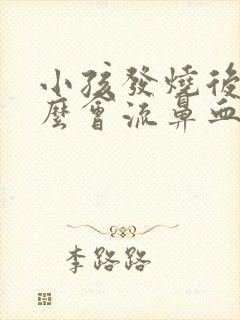 小孩發燒後
麼會流鼻血
李路路